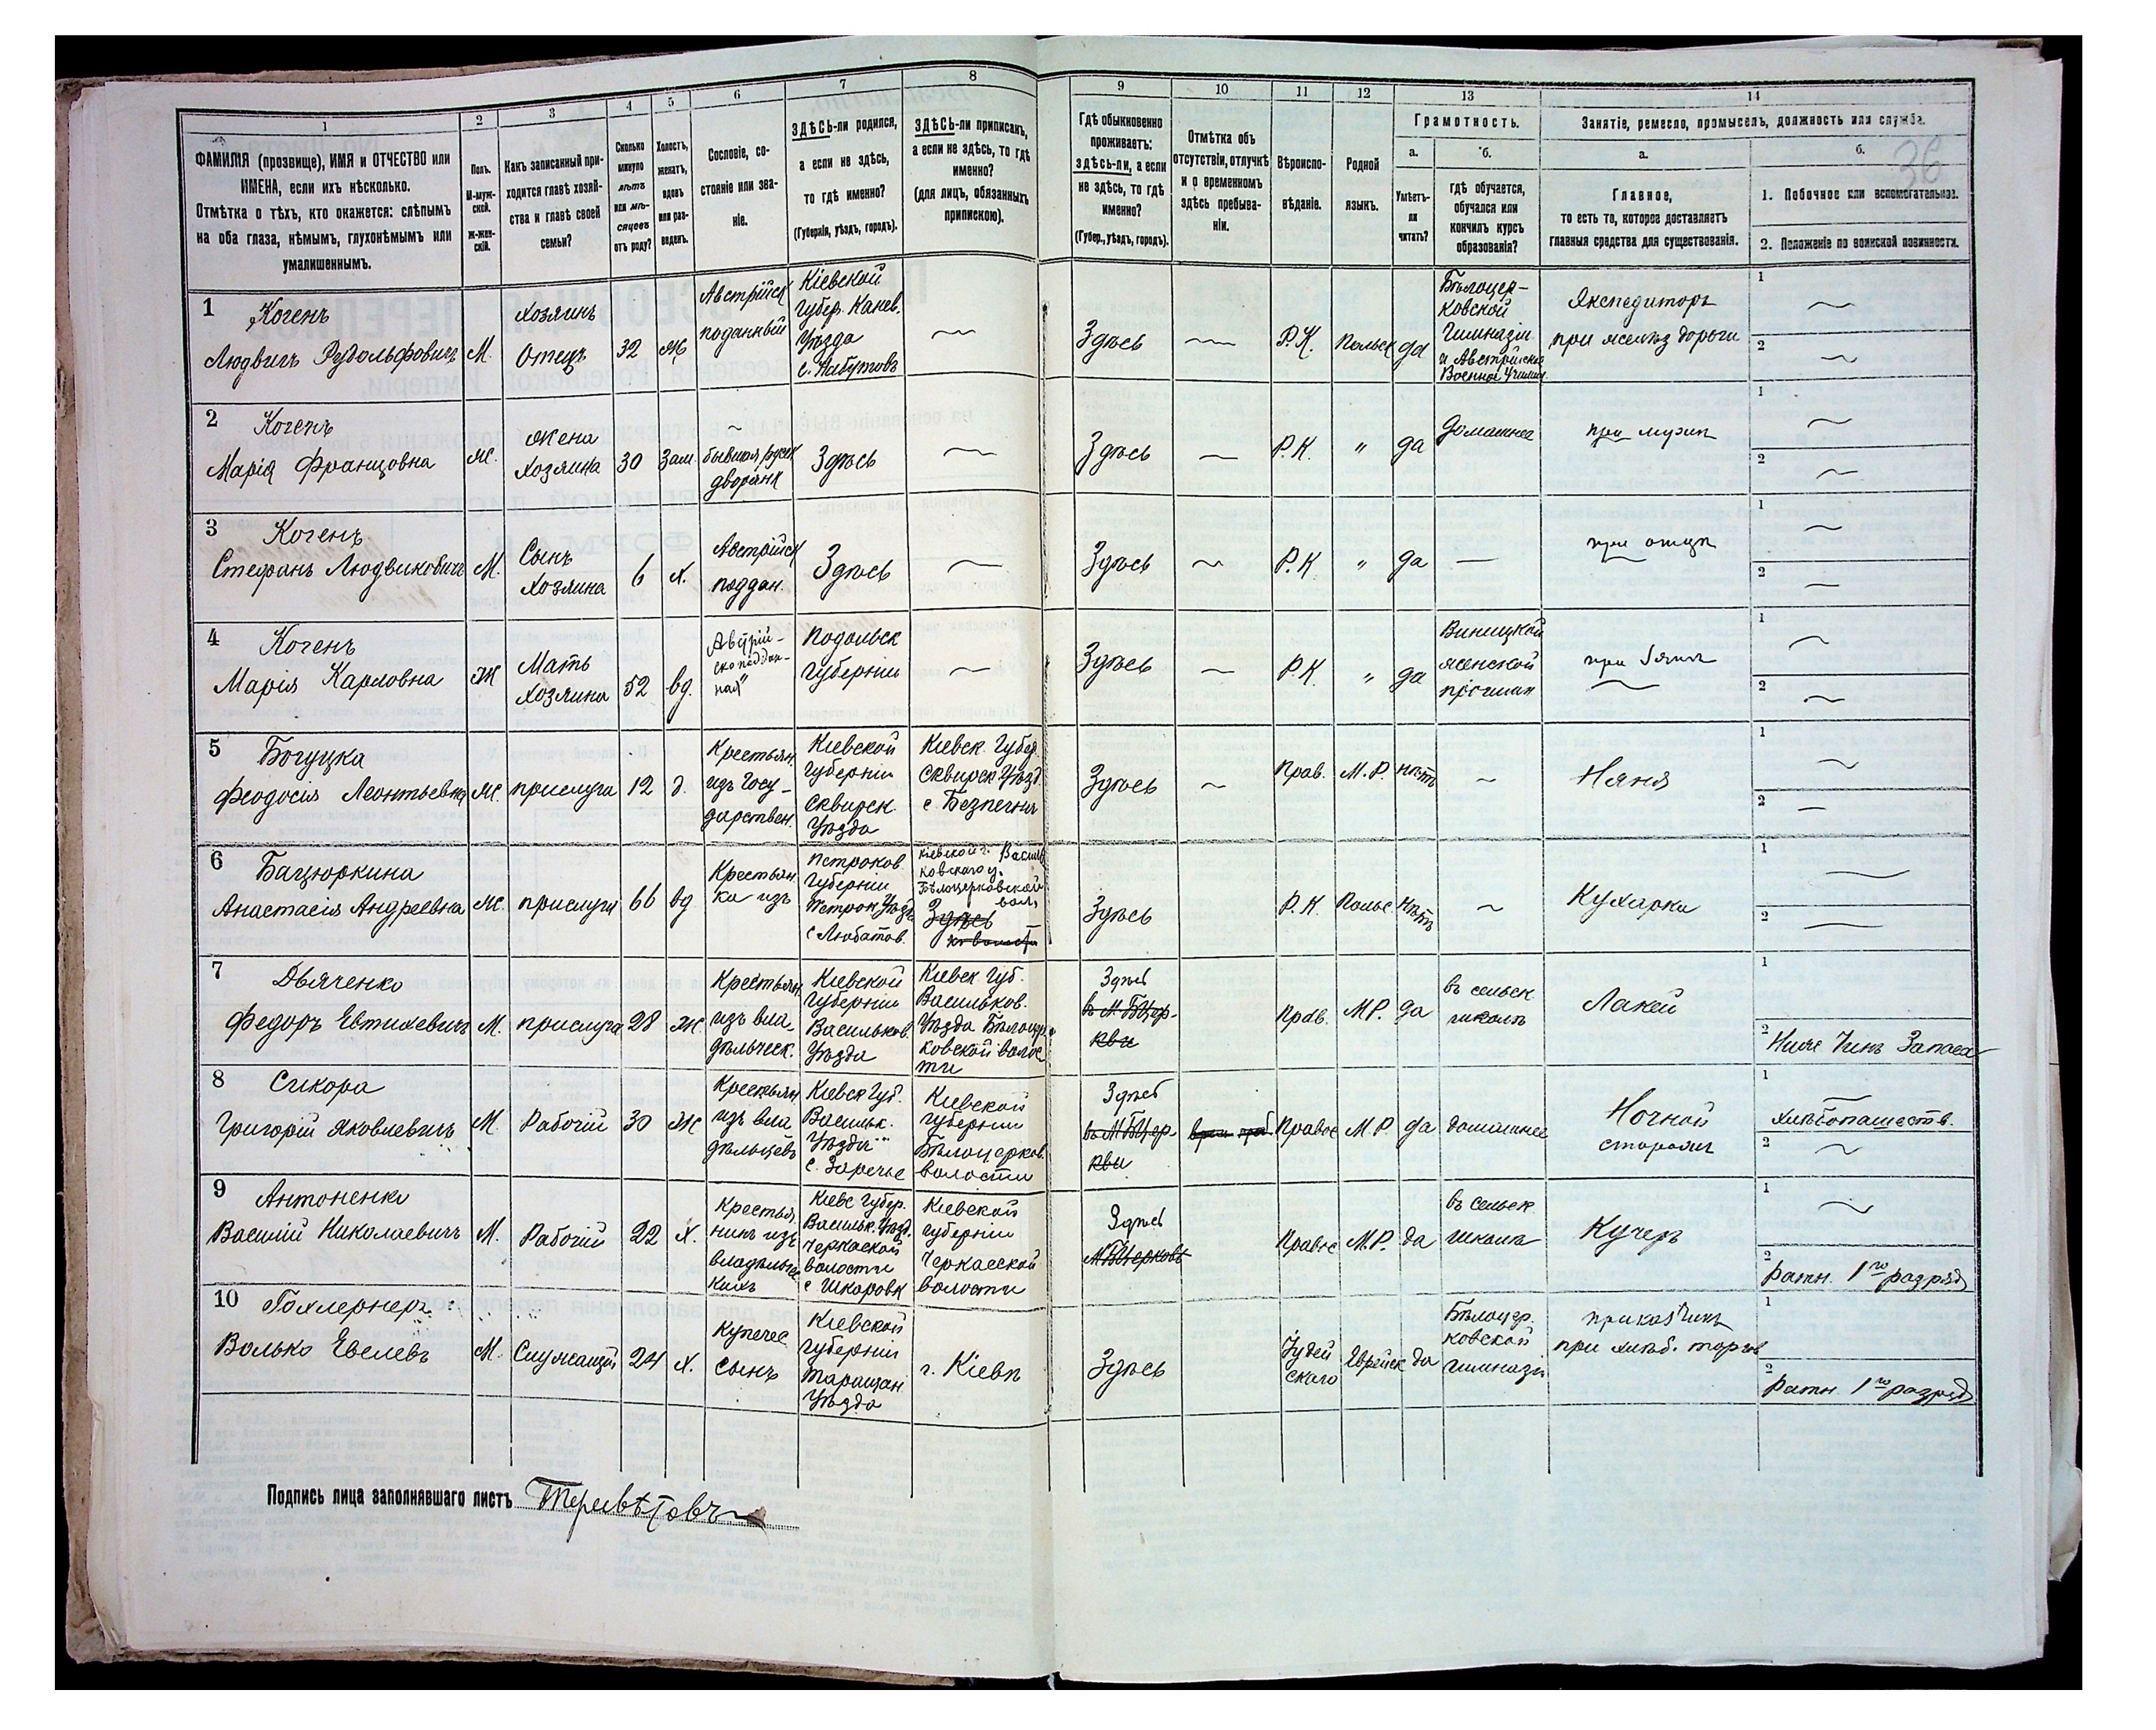 36
1
2
3
4
5
6
7
8
9
10
11
12
13
14
ФАМИЛІЯ (прозвище), ИМЯ и ОТЧЕСТВО или
ИМЕНА, если ихъ нѣсколько.
Отмѣтка о тѣхъ, кто окажется: слѣпымъ
на оба глаза, нѣмымъ, глухонѣмымъ или
умалишеннымъ.
Полъ.
М-муж-
ской.
Ж-жен-
скій.
Какъ записанный при-
ходится главѣ хозяй-
ства и главѣ своей
семьи?
Сколько
минуло
лѣтъ
или мѣ-
сяцевъ
отъ роду?
Холостъ,
женатъ,
вдовъ
или раз-
веденъ.
Сословіе, со-
стояніе или зва-
ніе.
ЗДѢСЬ-ли родился,
а если не здѣсь,
то гдѣ именно?
(Губернія, уѣздъ, городъ).
ЗДѢСЬ-ли приписанъ,
а если не здѣсь, то гдѣ
именно?
(для лицъ, обязанныхъ
припискою).
Гдѣ обыкновенно
проживаетъ:
здѣсь-ли, а если
не здѣсь, то гдѣ
именно?
(Губер., уѣздъ, городъ).
Отмѣтка объ
отсутствіи, отлучкѣ
и о временномъ
здѣсь пребыва-
ніи.
Вѣроиспо-
вѣданіе.
Родной
языкъ.
Грамотность.
а.
Умѣетъ-
ли
читать?
б.
гдѣ обучается,
обучался или
кончилъ курсъ
образованія?
Занятіе, ремесло, промыселъ, должность или служба.
а.
Главное,
то есть то, которое доставляетъ
главныя средства для существованія.
б.
1. Побочное или вспомогательное.
2. Положеніе по воинской повинности.
1
Когенъ
Людвигъ Рудольфовичъ
М.
Хозяинъ
Отецъ
32
Ж
Австрійск
поданный
Кіевской
Губер. Канев.
Уѣзда
с. Набутовъ
Здѣсь
Р.К.
Польск
да
Бѣлоцер-
ковской
Гимназіи
и Австрійское
Военное Училищ.
Экспедиторъ
при желѣз дороги
1
2
2
Когенъ
Марія Францовна
Ж.
Жена
Хозяина
30
Зам
бывшая русск
дворянк
Здѣсь
Здѣсь
Р.К.
"
да
домашнее
при мужи
1
2
3
Когенъ
Стефанъ Людвиковичъ
М.
Сынъ
Хозяина
6
х.
Австрійск
поддан.
Здѣсь
Здѣсь
Р.К
"
да
при отцѣ
1
2
4
Когенъ
Марія Карловна
Ж
Мать
Хозяина
52
вд.
Австрій-
ско поддан-
ная
Подольск
Губерніи
Здѣсь
Р.К
"
да
Виницкой
женской
прогимн
1
2
5
Богуцка
Феодосія Леонтьевна
Ж.
прислуга
12
д.
Крестьян.
изъ Госу-
дарствен.
Кіевской
Губерніи
Сквирск.
Уѣзда
Кіевск. Губер
Сквирск. Уѣзд.
с Безпечня
Здѣсь
Прав.
М.Р.
нѣтъ
Няня
1
2
6
Бацюркина
Анастасія Андреевна
Ж.
прислуга
66
вд
Крестьян.
ка изъ
Петроков
Губерніи
Петрок Уѣзд
с Любатов.
Кіевской г. Василь
ковскаго у.
Бѣлоцерковской
вол.
Здѣсь
Здѣсь
Р.К.
Польс.
нѣтъ
Кухарка
1
2
7
Дьяченко
Федоръ Евтихевичъ
М.
прислуга
28
Ж.
Крестьян
изъ вла-
дѣльческ.
Кіевской
Губерніи
Васильков.
Уѣзда
Кіевск Губ.
Васильков.
Уѣзда Бѣлоцер
ковской волос
ти
Здѣсь
въ М. БЦер-
кви
Прав.
М.Р.
да
въ сельск
школѣ
Лакей
1
2
Ниж Чинъ Запаса
8
Сикора
Григорій Яковлевичъ
М.
Рабочій
30
Ж
Крестьян.
изъ вла
дѣльцевъ
Кіевск Губ.
Васильк.
Уѣзда
с. Заречье
Кіевской
Губерніи
Бѣлоцерков.
волости
Здѣсь
въ М БЦер-
кви
Правос
М.Р
да
домашнее
Ночной
сторожъ
1
хлѣбопашеств.
2
9
Антоненко
Василій Николаевичъ
М.
Рабочій
22
Х.
Крестья
нинъ изъ
владѣльчес
кихъ
Кіевс Губер.
Васильк. Уѣзд.
Черкаской
волости
с Шкаровк
Кіевской
Губерніи
Черкасской
волости
Здѣсь
М БЦерковь
Правос
М.Р.
да
въ сельск
школа
Кучеръ
1
2
Ратн. 1го разряд
10
Гохлернеръ
Волько Евелевъ
М.
Служащій
24
х.
Купечес
сынъ
Кіевской
Губерніи
Таращан
Уѣзда
г. Кіевѣ
Здѣсь
Іудей
скаго
Еврейск
да
Бѣлоцер.
ковской
гимназіи
приказчикъ
при хлѣб. торгов
1
2
Ратн 1го разряд
Подпись лица заполнявшаго листъ